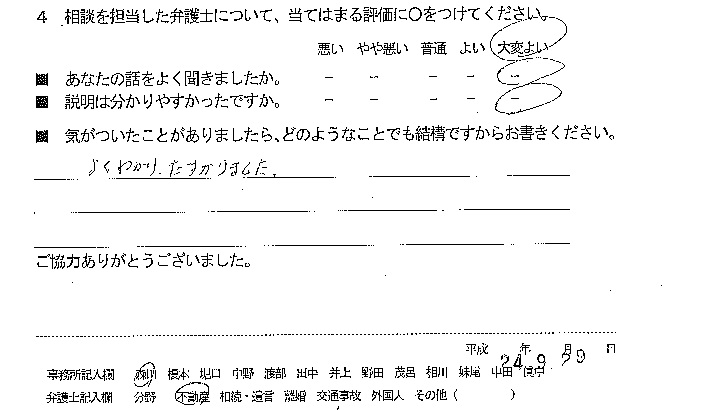 4 相談を担当した弁護士について、当てはまる評価に〇をつけてください。
悪い やや悪い 普通 よい 大変よい
■ あなたの話をよく聞きましたか。 － － － － －
■ 説明は分かりやすかったですか。 － － － － －
■ 気がついたことがありましたら、どのようなことでも結構ですからお書きください。
よくわかり、たすかりました。
ご協力ありがとうございました。
平成 24 年 9 月 29 日
事務所記入欄 森川 榎本 堀口 中野 渡部 田中 井上 野田 茂呂 相川 妹尾 中田
弁護士記入欄 分野 不動産 相続・遺言 離婚 交通事故 外国人 その他（ ）